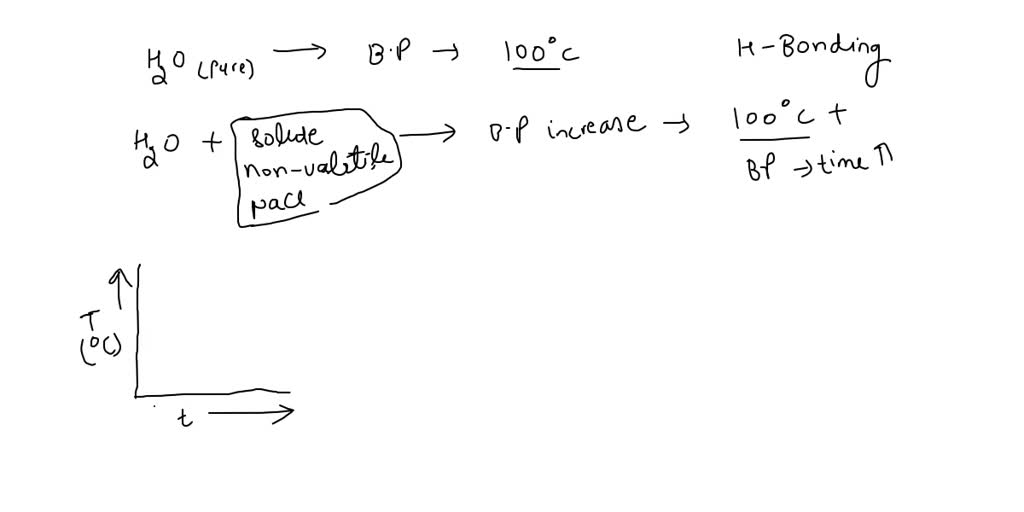 H2O (pure) → B.P → 100°C H-Bonding
H2O + solute → B.P increase → 100°C +
non-valatile BP → time ⇑
NaCl
T
(°C)
t →